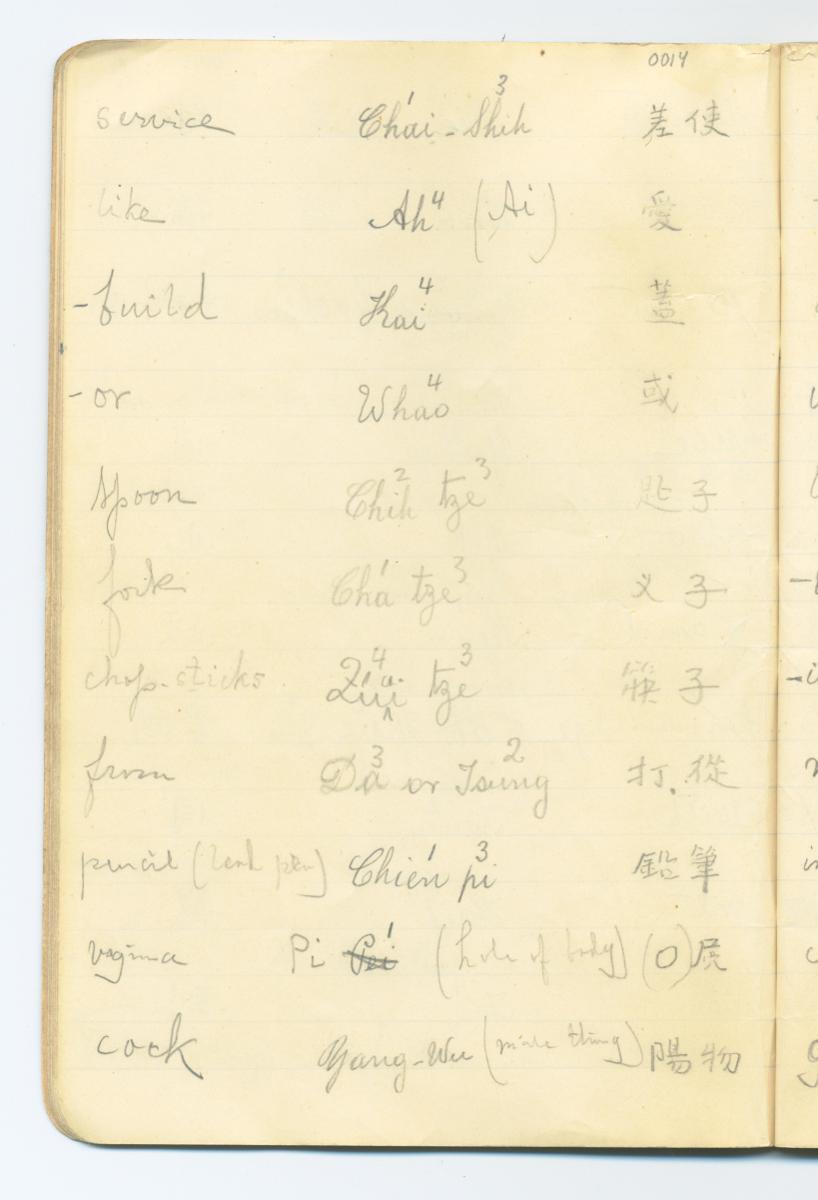 0014
service Chái - Shih³ 差使
like Ah⁴ (Ai) 愛
- build Kai⁴ 蓋
- or Whao⁴ 或
spoon Chih² tze³ 匙子
fork Chá tze³ 义子
chop-sticks tze³ 筷子
from Da³ or Tsung² 打.從
pencil (lead pen) Chién pi³ 鉛筆
vagina Pi (hole of body) (O)
cock Yang-Wu (male thing) 陽物